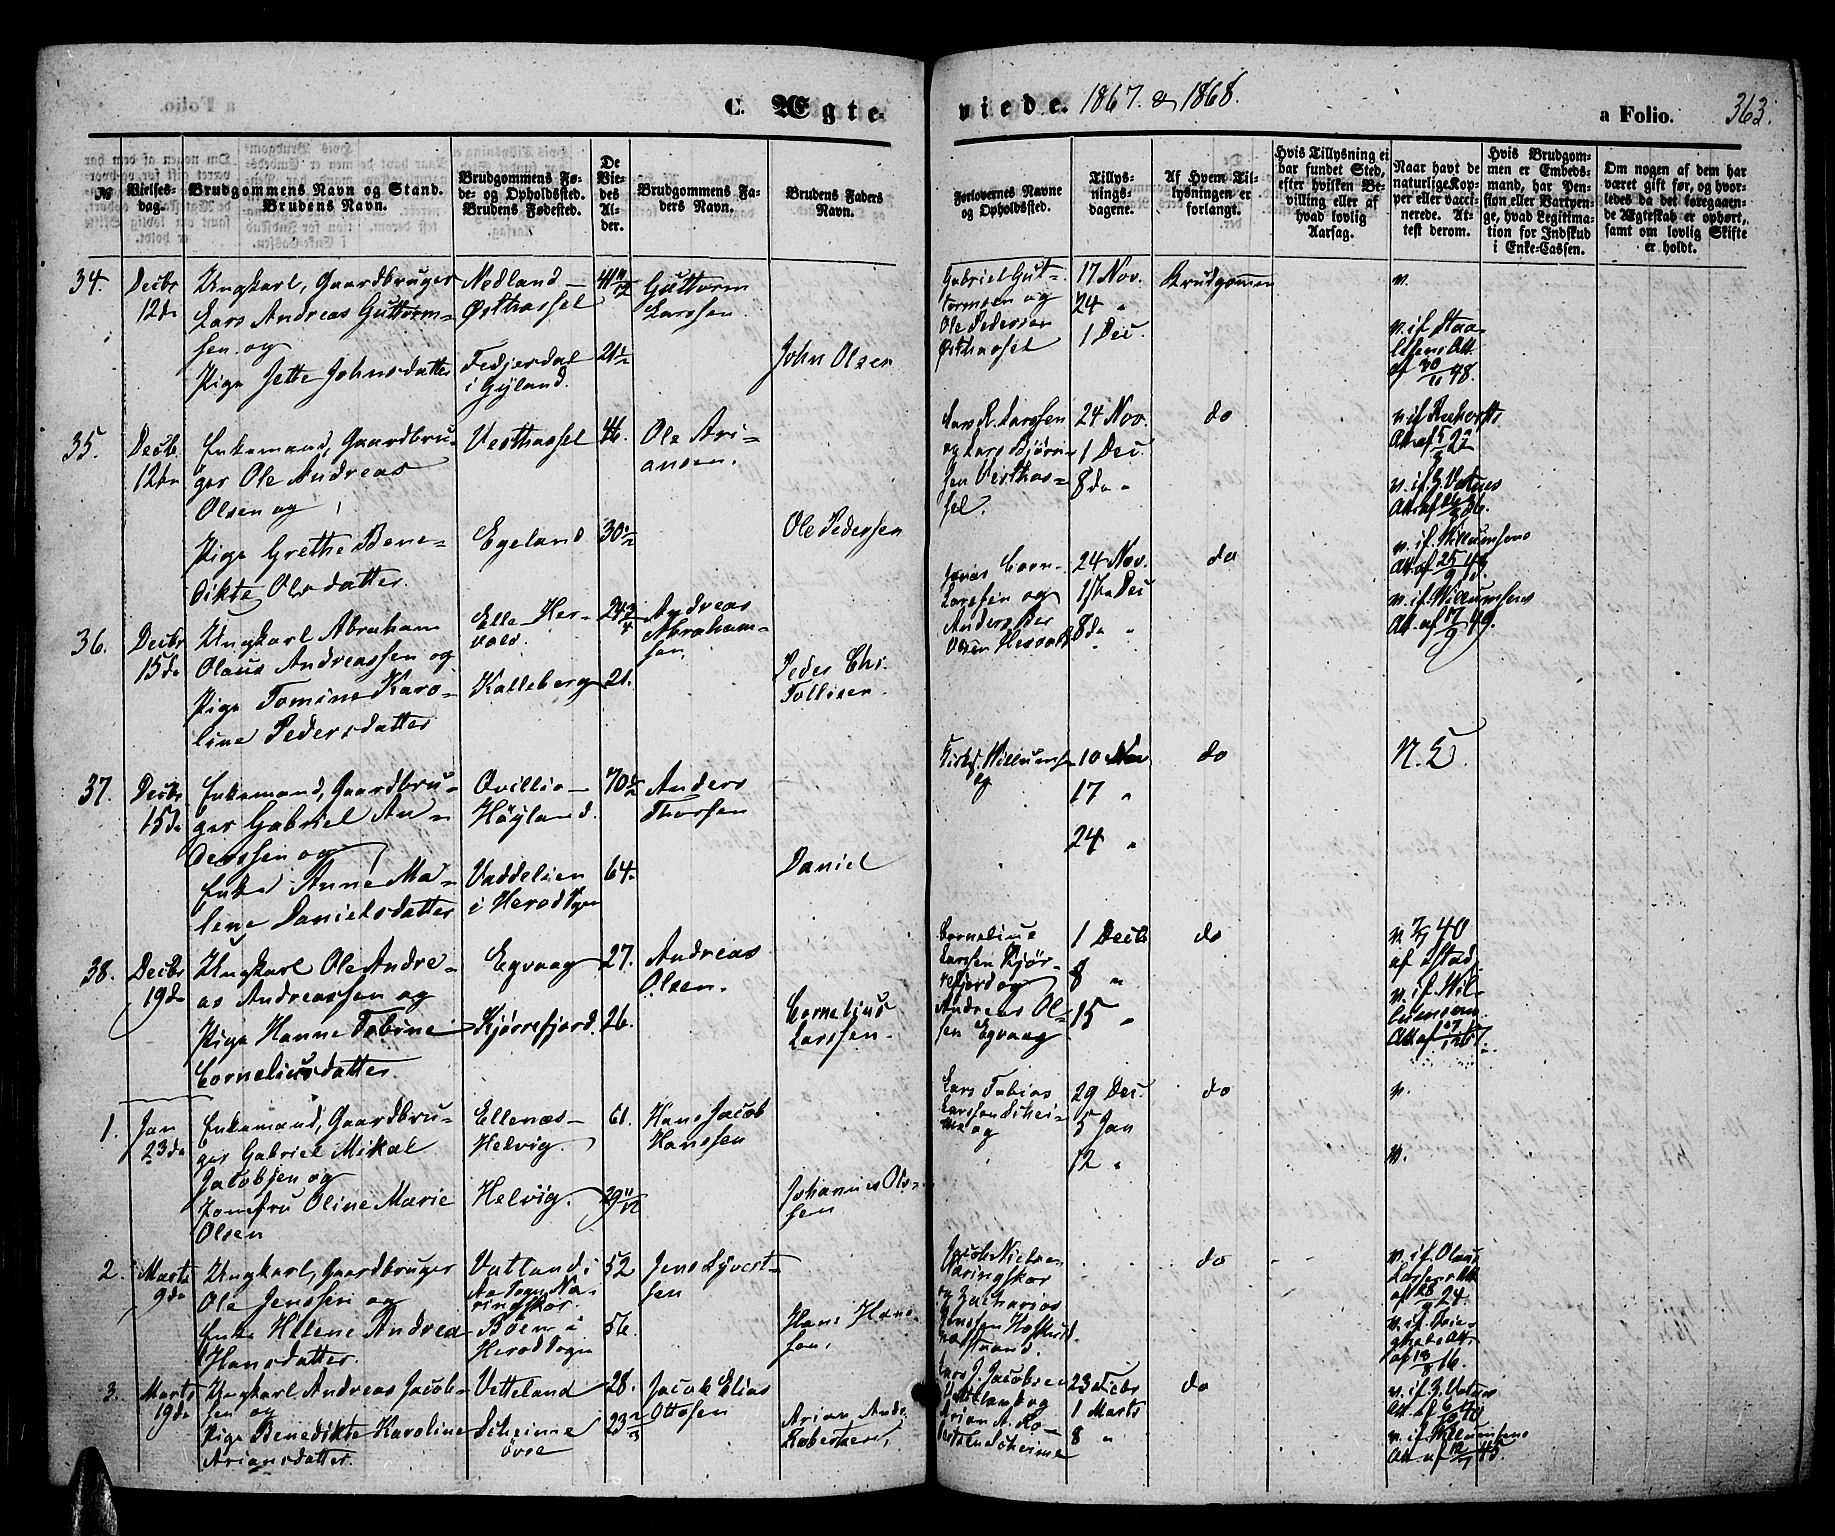 C. Ægte-
viede. 1867. & 1868.
a Folio. 363.
№
Vielses-
dag.
Brudgommens Navn og Stand.
Brudens Navn.
Brudgommens Fø-
de- og Opholdssted.
Brudens Fødested.
De
Vie-
des
Al-
der.
Brudgommens Fa-
ders Navn.
Brudens Faders
Navn.
Forlovernes Navne
og Opholdssted.
Tillys-
nings-
dagene.
Af Hvem Til-
lysningen er
forlangt.
Hvis Tillysning ei
har fundet Sted,
efter hvilken Be-
villing eller af
hvad lovlig
Aarsag.
Naar havt de
naturlige Kop-
per eller vacci-
nerede. At-
test derom.
Hvis Brudgom-
men er Embeds-
mand, har Pen-
sion eller Vartpen-
ge, hvad Legitima-
tion for Indskud
i Enke-Cassen.
Om nogen af dem har
været gift før, og hvor-
ledes da det foregaaen-
de Ægteskab er ophørt,
samt om lovlig Skifte
er holdt.
34. Decbr
12de
Ungkarl, Gaardbruger
Lars Andreas Guttorm-
sen og
Pige Jette Johnsdatter
Nedland
Østhassel
Fedjerdal
i Gyland.
Guttorm
Larssen
John Olsen
Gabriel Gut-
tormsen og
Ole Pedersen
Østhassel
17 Nov.
24 "
1 Dec.
Brudgommen
v.
v. if. Staa-
af 30/11 48.
35. Decbr.
12de
Enkemand, Gaardbru-
ger Ole Andreas
Olsen og
Pige Grethe Bene-
dikte Olsdatter.
Vesthassel
Egeland
46.
30 1/2
Ole Ari-
ansen.
Ole Pedersen
Lars R. Larssen
og Lars Bjørn-
sen Vesthas-
sel.
24 Nov.
1 Dec.
8de "
do
36. Decbr
15de
Ungkarl Abraham
Olaus Andreassen og
Pige Tomine Karo-
line Pedersdatter
Elle Her-
vold.
Kalleberg
24 3/4
21.
Andreas
Abraham-
sen.
Peder Chr.
Tollisen.
Larssen og
Anders
Olsen
24 Nov.
1ste Dec
8de "
do
v. if. Willumsens
37. Decbr
15de
Enkemand, Gaardbru-
ger Gabriel An-
derssen og
Enke Anne Ma-
lene Danielsdatter
Ovillio-
Høyland.
Vaddelien
i Herad Sogn
70 1/2
64.
Anders
Thorsen
Daniel
og
10 Nov
17 "
24 "
do
N. E.
38. Decbr
19de
Ungkarl Ole Andre-
as Andreassen og
Pige Hanne Tobine
Corneliusdatter.
Egvaag
Kjørrefjord.
27.
26.
Andreas
Olsen.
Cornelius
Larssen.
Cornelius
Larssen Kjør-
refjord og
Andreas Ol-
sen Egvaag
1 Decbr
8 "
15 "
do
1. Jan
23de
Enkemand, Gaardbru-
ger Gabriel Mikal
Jacobsen og
Jomfru Oline Marie
Olsen
Ellenæs-
Helvig.
Helvig.
61.
29 11/12
Hans Jacob
Hanssen
Johannes Ol-
sen
Lars Tobias
Larssen Skei-
me og
29 Dec.
5 Jan
12 "
do
v.
v.
2. Marts
9de
Ungkarl, Gaardbruger
Ole Jenssen og
Enke Helene Andrea
Hansdatter.
Vatland i
Aa Sogn Na-
ringskor.
Bøen i
Herad Sogn
52
56.
Jens Syvert-
sen
Hans Han-
sen.
Jacob Nielsen
Naringskor
og Zacharias
Jenssen
do
v. if. Olaus
3. Marts
19de
Ungkarl Andreas Jacob-
sen og
Pige Benedikte Karoline
Ariansdatter.
Vetteland
Skeime
øvre
28.
23 2/3
Jacob Elias
Ottosen
Arian Andr.
Robertsen,
Lars J. Jacobsen
Vetteland og
Arian A. Ro-
bertsen Skeime
23 Febr
1 Marts
8 "
do